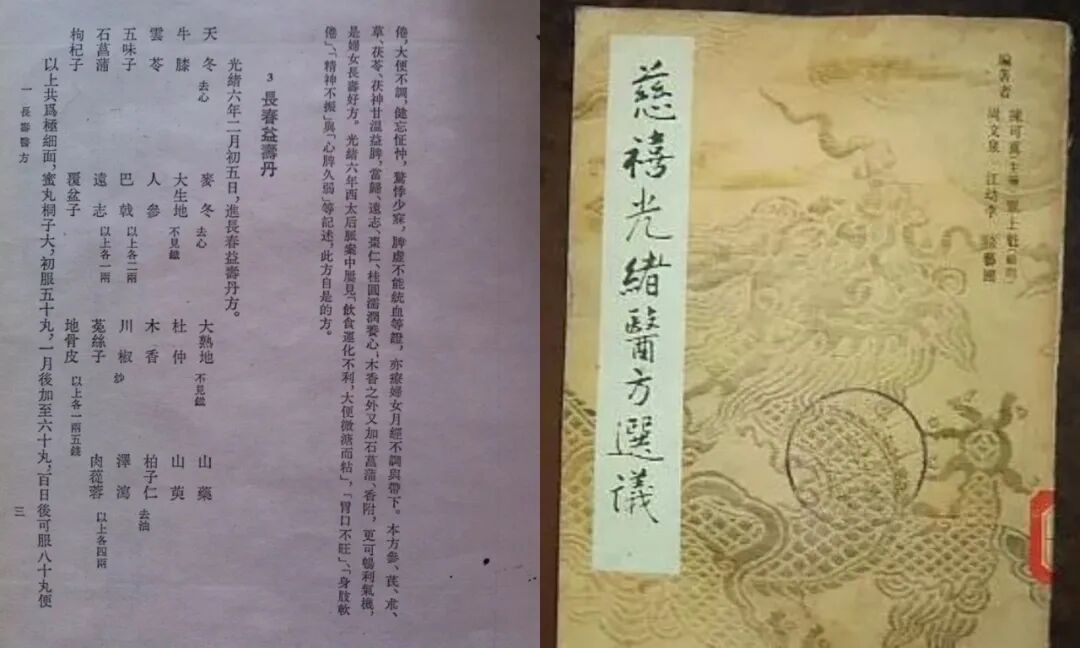 倦,大便不調,健忘怔忡,驚悸少寐,脾虛不能統血等證,亦療婦女月經不調與帶下。本方參、芪、朮、
草、茯苓、茯神甘溫益脾,當歸、遠志、棗仁、桂圓濡潤養心;木香之外又加石菖蒲、香附,更可暢利氣機,
是婦女長壽好方。光緒六年西太后脈案中屢見「飲食運化不利,大便微溏而粘」,「胃口不旺」、「身肢軟
倦」、「精神不振」與「心脾久弱」等記述,此方自是的方。
3 長春益壽丹
光緒六年二月初五日,進長春益壽丹方。
天冬 去心 麥冬 去心 大熟地 不見鐵 山藥
牛膝 大生地 不見鐵 杜仲 山萸
雲苓 人參 木香 柏子仁 去油
五味子 巴戟 以上各二兩 川椒 炒 澤瀉
石菖蒲 遠志 以上各一兩 菟絲子 肉蓯蓉 以上各四兩
枸杞子 覆盆子 地骨皮 以上各一兩五錢
以上共爲極細面,蜜丸桐子大,初服五十丸,一月後加至六十丸,百日後可服八十丸便
一 長壽醫方 三
編著者 陳可冀(主編) 單士魁(顧問)
周文泉 江幼李 徐藝圃
慈禧光緒醫方選議